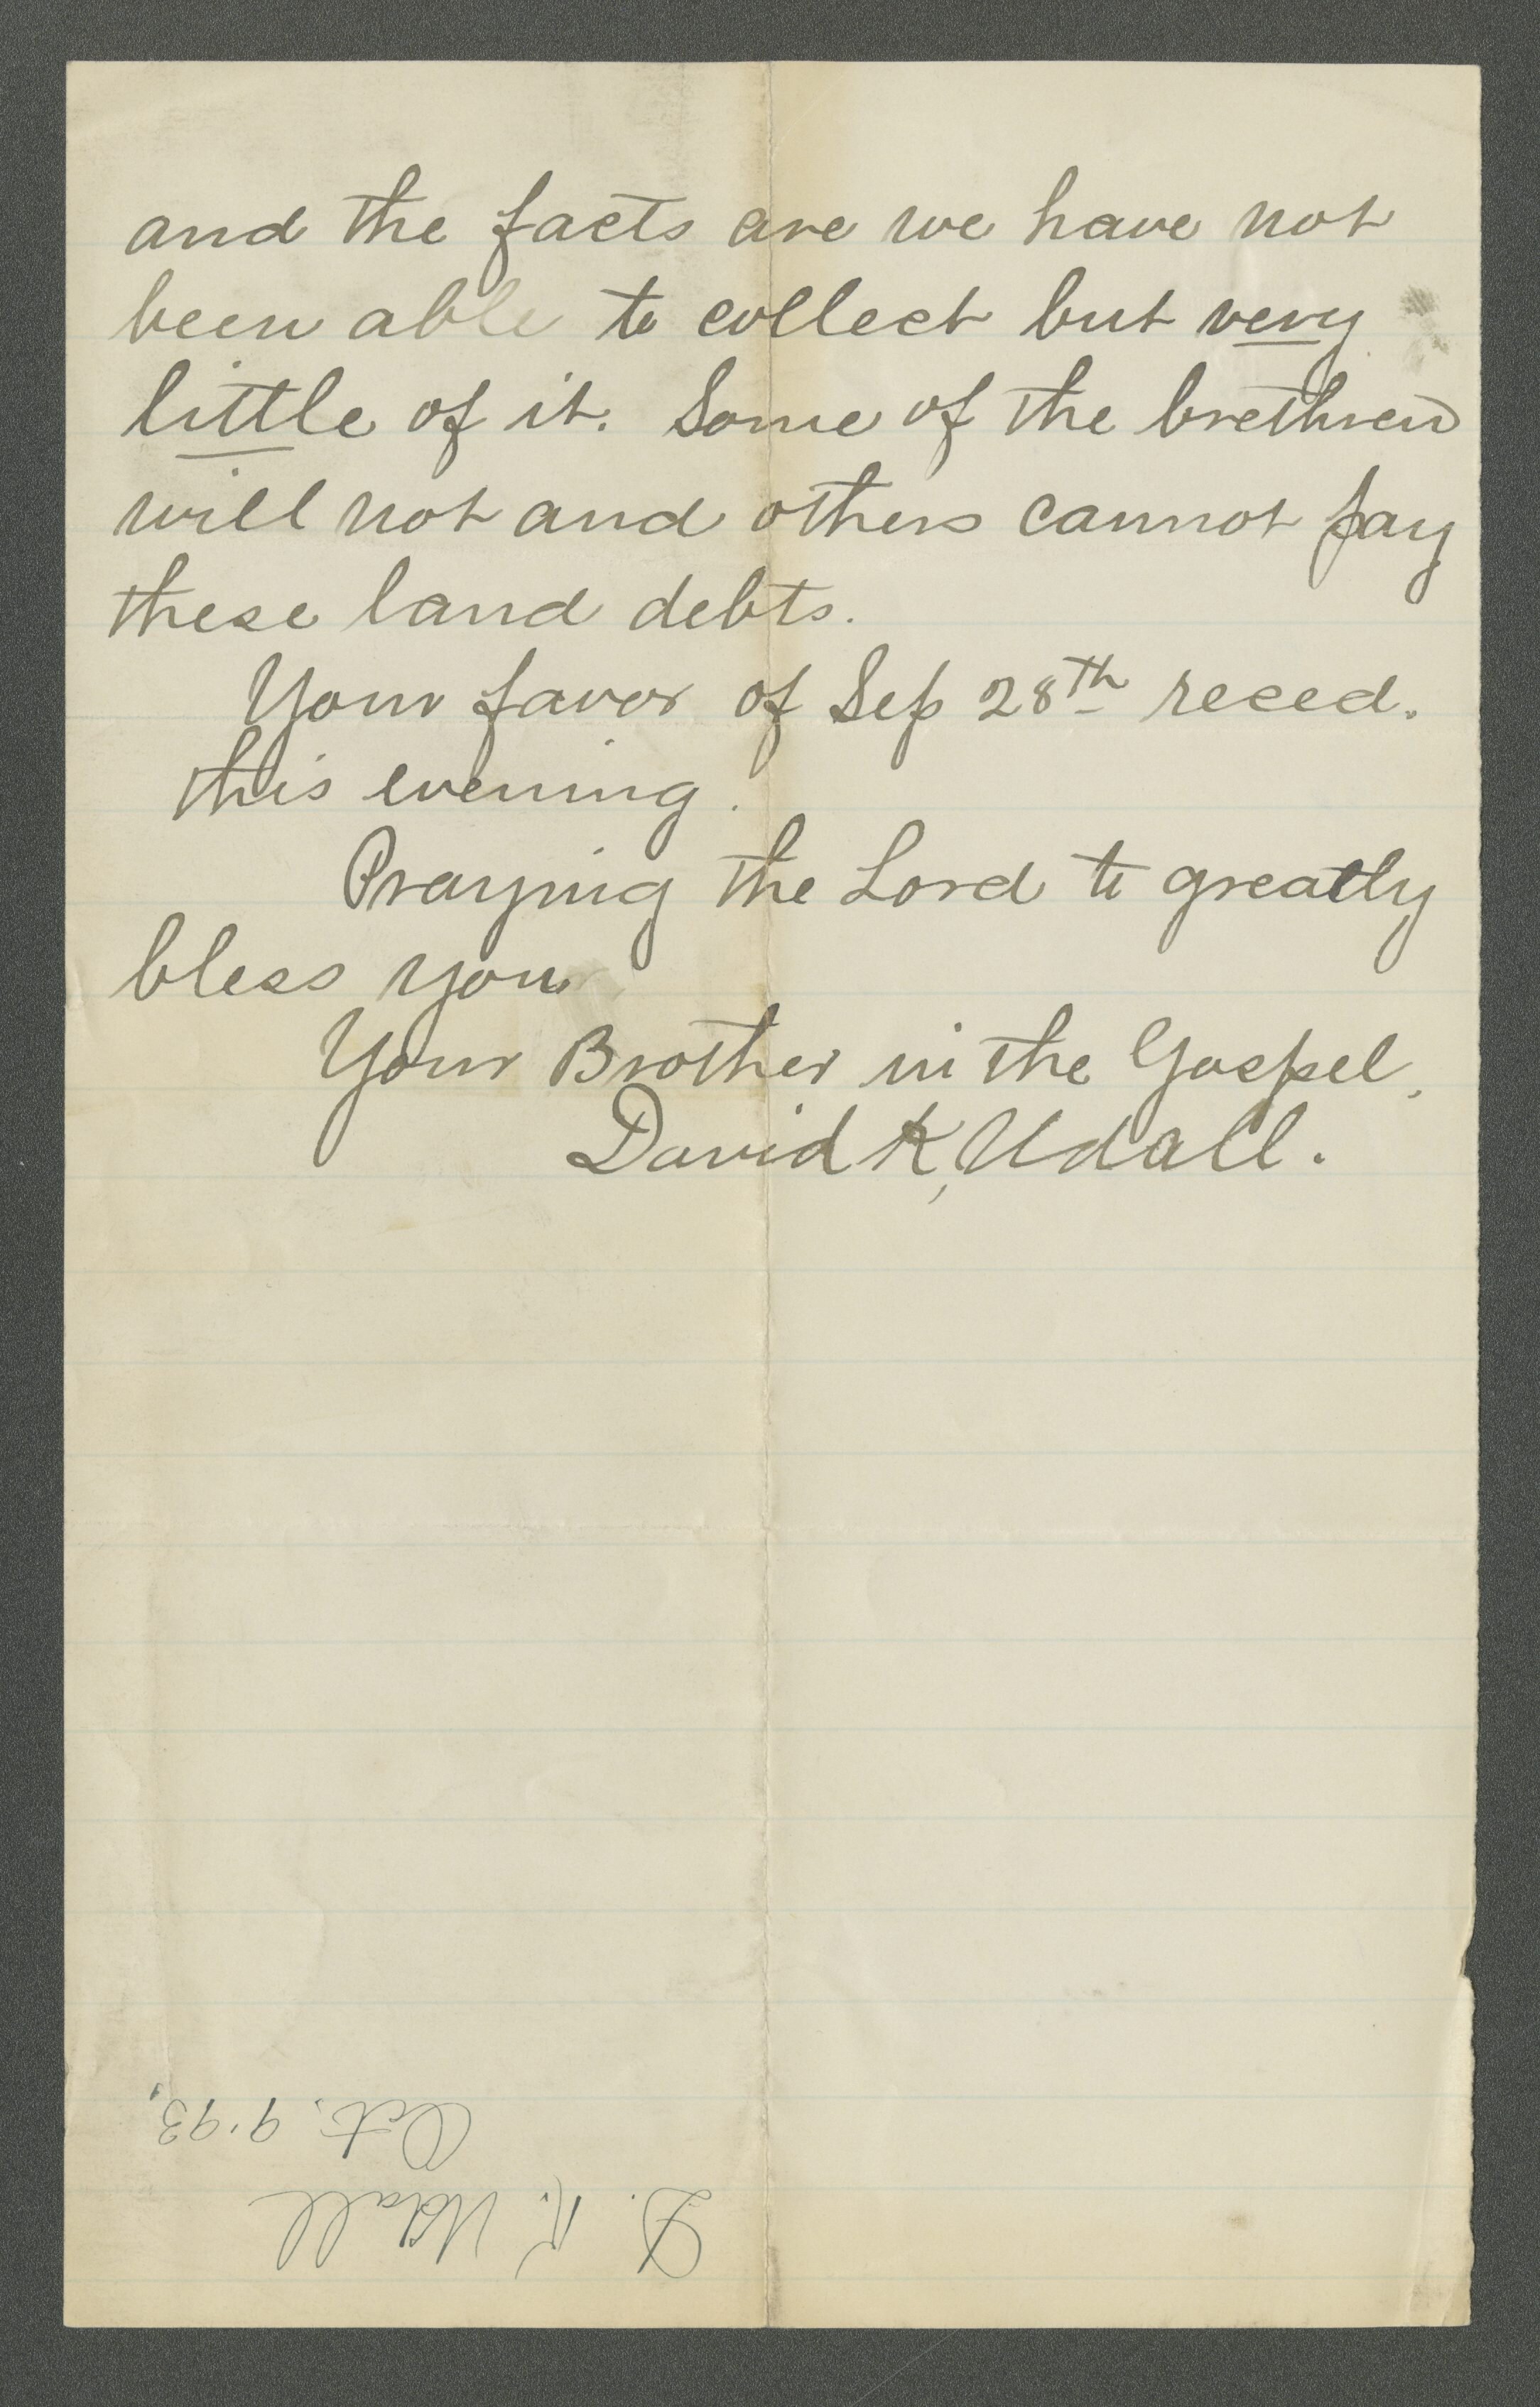 and the facts are we have not
been able to collect but very
little of it. Some of the brethren
will not and others cannot pay
these land debts.
Your favor of Sep 28th reced.
this evening.
Praying the Lord to greatly
bless you
Your Brother in the Gospel,
David K, Udall.
D. K. Udall
Oct. 9'93,